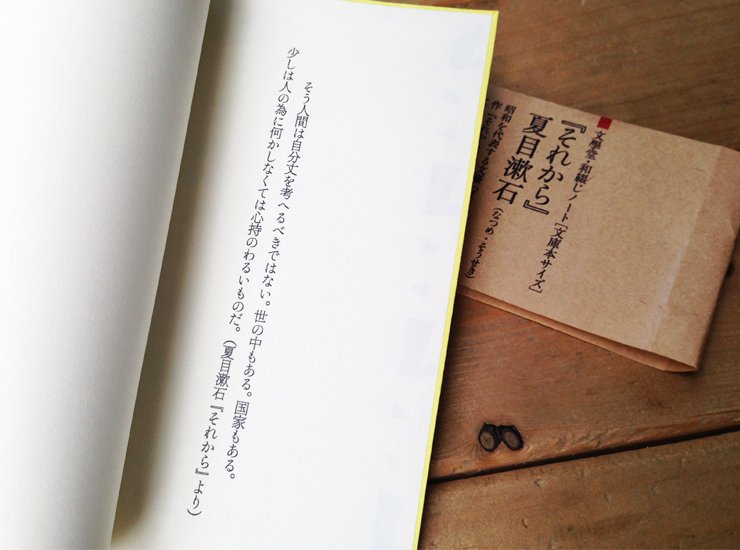 そう人間は自分丈を考へるべきではない。世の中もある。国家もある。
少しは人の為に何かしなくては心持のわるいものだ。(夏目漱石『それから』より)
文學堂・和綴じノート[文庫本サイズ]
『それから』
夏目漱石(なつめ・そうせき)
昭和を代表する文
作『それ